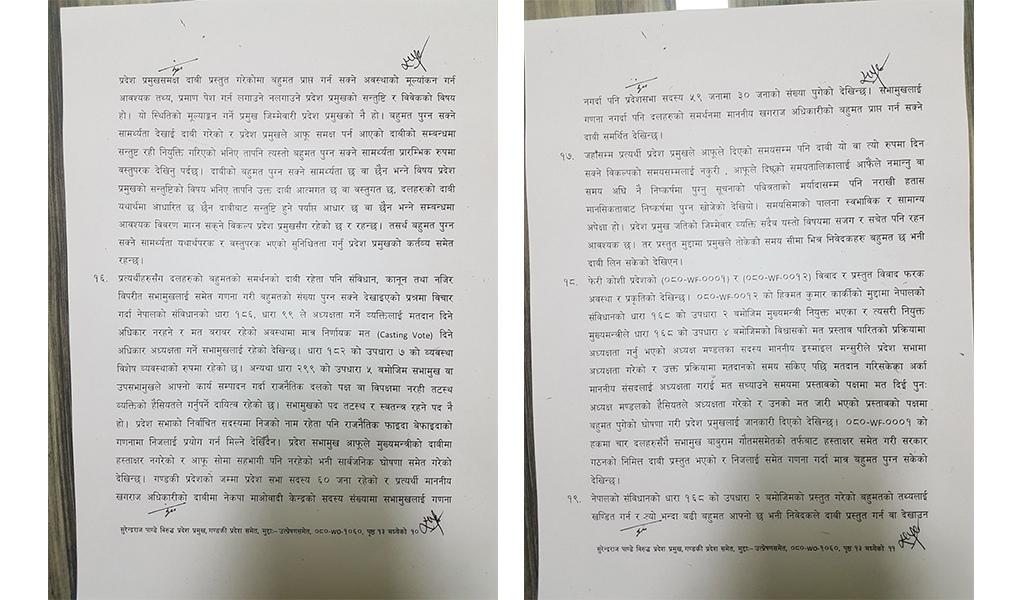 प्रदेश प्रमुखसमक्ष दाबी प्रस्तुत गरेकोमा बहुमत प्राप्त गर्न सक्ने अवस्थाको मूल्यांकन गर्न
आवश्यक तथ्य, प्रमाण पेश गर्न लगाउने नलगाउने प्रदेश प्रमुखको सन्तुष्टि र विवेकको विषय
हो। यो स्थितिको मूल्याङ्कन गर्ने प्रमुख जिम्मेवारी प्रदेश प्रमुखको नै हो। बहुमत पुग्न सक्ने
सामर्थ्यता देखाई दाबी गरेको र प्रदेश प्रमुखले आफू समक्ष पर्न आएको दाबीको सम्बन्धमा
सन्तुष्ट रही नियुक्ति गरिएको भनिए तापनि त्यस्तो बहुमत पुग्न सक्ने सामर्थ्यता प्रारम्भिक रुपमा
वस्तुपरक देखिनु पर्दछ। दाबीको बहुमत पुग्न सक्ने सामर्थ्यता छ वा छैन भन्ने विषय प्रदेश
प्रमुखको सन्तुष्टिको विषय भनिए तापनि उक्त दाबी आत्मगत छ वा वस्तुगत छ, दलहरुको दाबी
यथार्थमा आधारित छ छैन दाबीबाट सन्तुष्टि हुने पर्याप्त आधार छ वा छैन भन्ने सम्बन्धमा
आवश्यक विवरण माग्न सक्ने विकल्प प्रदेश प्रमुखसँग रहेको छ र रहन्छ। तसर्थ बहुमत पुग्न
सक्ने सामर्थ्यता यथार्थपरक र वस्तुपरक भएको सुनिश्चितता गर्नु प्रदेश प्रमुखको कर्तव्य समेत
रहन्छ।
१६. प्रत्यर्थीहरुसँग दलहरुको बहुमतको समर्थनको दाबी रहेता पनि संविधान, कानून तथा नजिर
विपरीत सभामुखलाई समेत गणना गरी बहुमतको संख्या पुग्न सक्ने देखाइएको प्रश्नमा विचार
गर्दा नेपालको संविधानको धारा १८६, धारा ९९ ले अध्यक्षता गर्ने व्यक्तिलाई मतदान दिने
अधिकार नरहने र मत बराबर रहेको अवस्थामा मात्र निर्णायक मत (Casting Vote) दिने
अधिकार अध्यक्षता गर्ने सभामुखलाई रहेको देखिन्छ। धारा १८२ को उपधारा ७ को व्यवस्था
विशेष व्यवस्थाको रुपमा रहेको छ। अन्यथा धारा २९९ को उपधारा ५ बमोजिम सभामुख वा
उपसभामुखले आफ्नो कार्य सम्पादन गर्दा राजनैतिक दलको पक्ष वा विपक्षमा नरही तटस्थ
व्यक्तिको हैसियतले गर्नुपर्ने दायित्व रहेको छ। सभामुखको पद तटस्थ र स्वतन्त्र रहने पद नै
हो। प्रदेश सभाको निर्वाचित सदस्यमा निजको नाम रहेता पनि राजनैतिक फाइदा बेफाइदाको
गणनामा निजलाई प्रयोग गर्न मिल्ने देखिँदैन। प्रदेश सभामुख आफूले मुख्यमन्त्रीको दाबीमा
हस्ताक्षर नगरेको र आफू सोमा सहभागी पनि नरहेको भनी सार्वजनिक घोषणा समेत गरेको
देखिन्छ। गण्डकी प्रदेशको जम्मा प्रदेश सभा सदस्य ६० जना रहेको र प्रत्यर्थी माननीय
खगराज अधिकारीको दाबीमा नेकपा माओवादी केन्द्रको सदस्य संख्यामा सभामुखलाई गणना
सुरेन्द्रराज पाण्डे विरुद्ध प्रदेश प्रमुख, गण्डकी प्रदेश समेत, मुद्दाः- उत्प्रेषणसमेत, ०८०-WO-१०६०, पृष्ठ १३ मध्येको १०
नगर्दा पनि प्रदेशसभा सदस्य ५९ जनामा ३० जनाको संख्या पुगेको देखिन्छ। सभामुखलाई
गणना नगर्दा पनि दलहरुको समर्थनमा माननीय खगराज अधिकारीको बहुमत प्राप्त गर्न सक्ने
दाबी समर्थित देखिन्छ।
१७. जहाँसम्म प्रत्यर्थी प्रदेश प्रमुखले आफूले दिएको समयसम्म पनि दाबी यो वा त्यो रुपमा दिन
सक्ने विकल्पको समयसम्मलाई नकुरी , आफूले दिएको समयतालिकालाई आफैले नमान्नु वा
समय अघि नै निष्कर्षमा पुग्नु सूचनाको पवित्रताको मर्यादासम्म पनि नराखी हतास
मानसिकताबाट निष्कर्षमा पुग्न खोजेको देखियो। समयसिमाको पालना स्वभाविक र सामान्य
अपेक्षा हो। प्रदेश प्रमुख जतिको जिम्मेवार व्यक्ति सदैव यस्तो विषयमा सजग र सचेत पनि रहन
आवश्यक छ। तर प्रस्तुत मुद्दामा प्रमुखले तोकेको समय सीमा भित्र निवेदकहरु बहुमत छ भनी
दाबी लिन सकेको देखिएन।
१८. फेरी कोशी प्रदेशको (०८०-WF-०००१) र (०८०-WF-००१२) विवाद र प्रस्तुत विवाद फरक
अवस्था र प्रकृतिको देखिन्छ। ०८०-WF-००१२ को हिक्मत कुमार कार्कीको मुद्दामा नेपालको
संविधानको धारा १६८ को उपधारा २ बमोजिम मुख्यमन्त्री नियुक्त भएका र त्यसरी नियुक्त
मुख्यमन्त्रीले धारा १६८ को उपधारा ४ बमोजिमको विश्वासको मत प्रस्ताव पारितको प्रक्रियामा
अध्यक्षता गर्नु भएको अध्यक्ष मण्डलका सदस्य माननीय इस्माइल मन्सुरीले प्रदेश सभामा
अध्यक्षता गरेको र उक्त प्रक्रियामा मतदानको समय सकिए पछि मतदान गरिसकेका अर्का
माननीय सांसदलाई अध्यक्षता गराई मत सध्याउने समयमा प्रस्तावको पक्षमा मत दिई पुनः
अध्यक्ष मण्डलको हैसियतले अध्यक्षता गरेको र उनको मत जारी भएको प्रस्तावको पक्षमा
बहुमत पुगेको घोषणा गरी प्रदेश प्रमुखलाई जानकारी दिएको देखिन्छ। ०८०-WF-०००१ को
हकमा चार दलहरुसँगै सभामुख बाबुराम गौतमसमेतको तर्फबाट हस्ताक्षर समेत गरी सरकार
गठनको निमित्त दाबी प्रस्तुत भएको र निजलाई समेत गणना गर्दा मात्र बहुमत पुग्न सकेको
देखिन्छ।
१९. नेपालको संविधानको धारा १६८ को उपधारा २ बमोजिमको प्रस्तुत गरेको बहुमतको तथ्यलाई
खण्डित गर्न र त्यो भन्दा बढी बहुमत आफ्नो छ भनी निवेदकले दाबी प्रस्तुत गर्न वा देखाउन
सुरेन्द्रराज पाण्डे विरुद्ध प्रदेश प्रमुख, गण्डकी प्रदेश समेत, मुद्दाः- उत्प्रेषणसमेत, ०८०-WO-१०६०, पृष्ठ १३ मध्येको ११